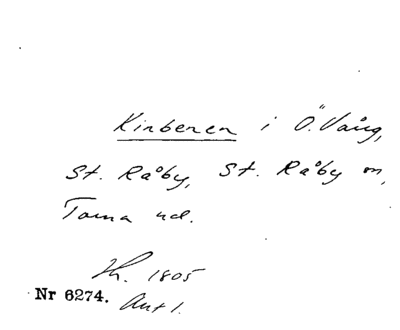 Kinbenen i Ö. Vång,
St. Råby, St. Råby sn,
Torna hd.
Kh. 1805
Nr 6274. Akt 1.